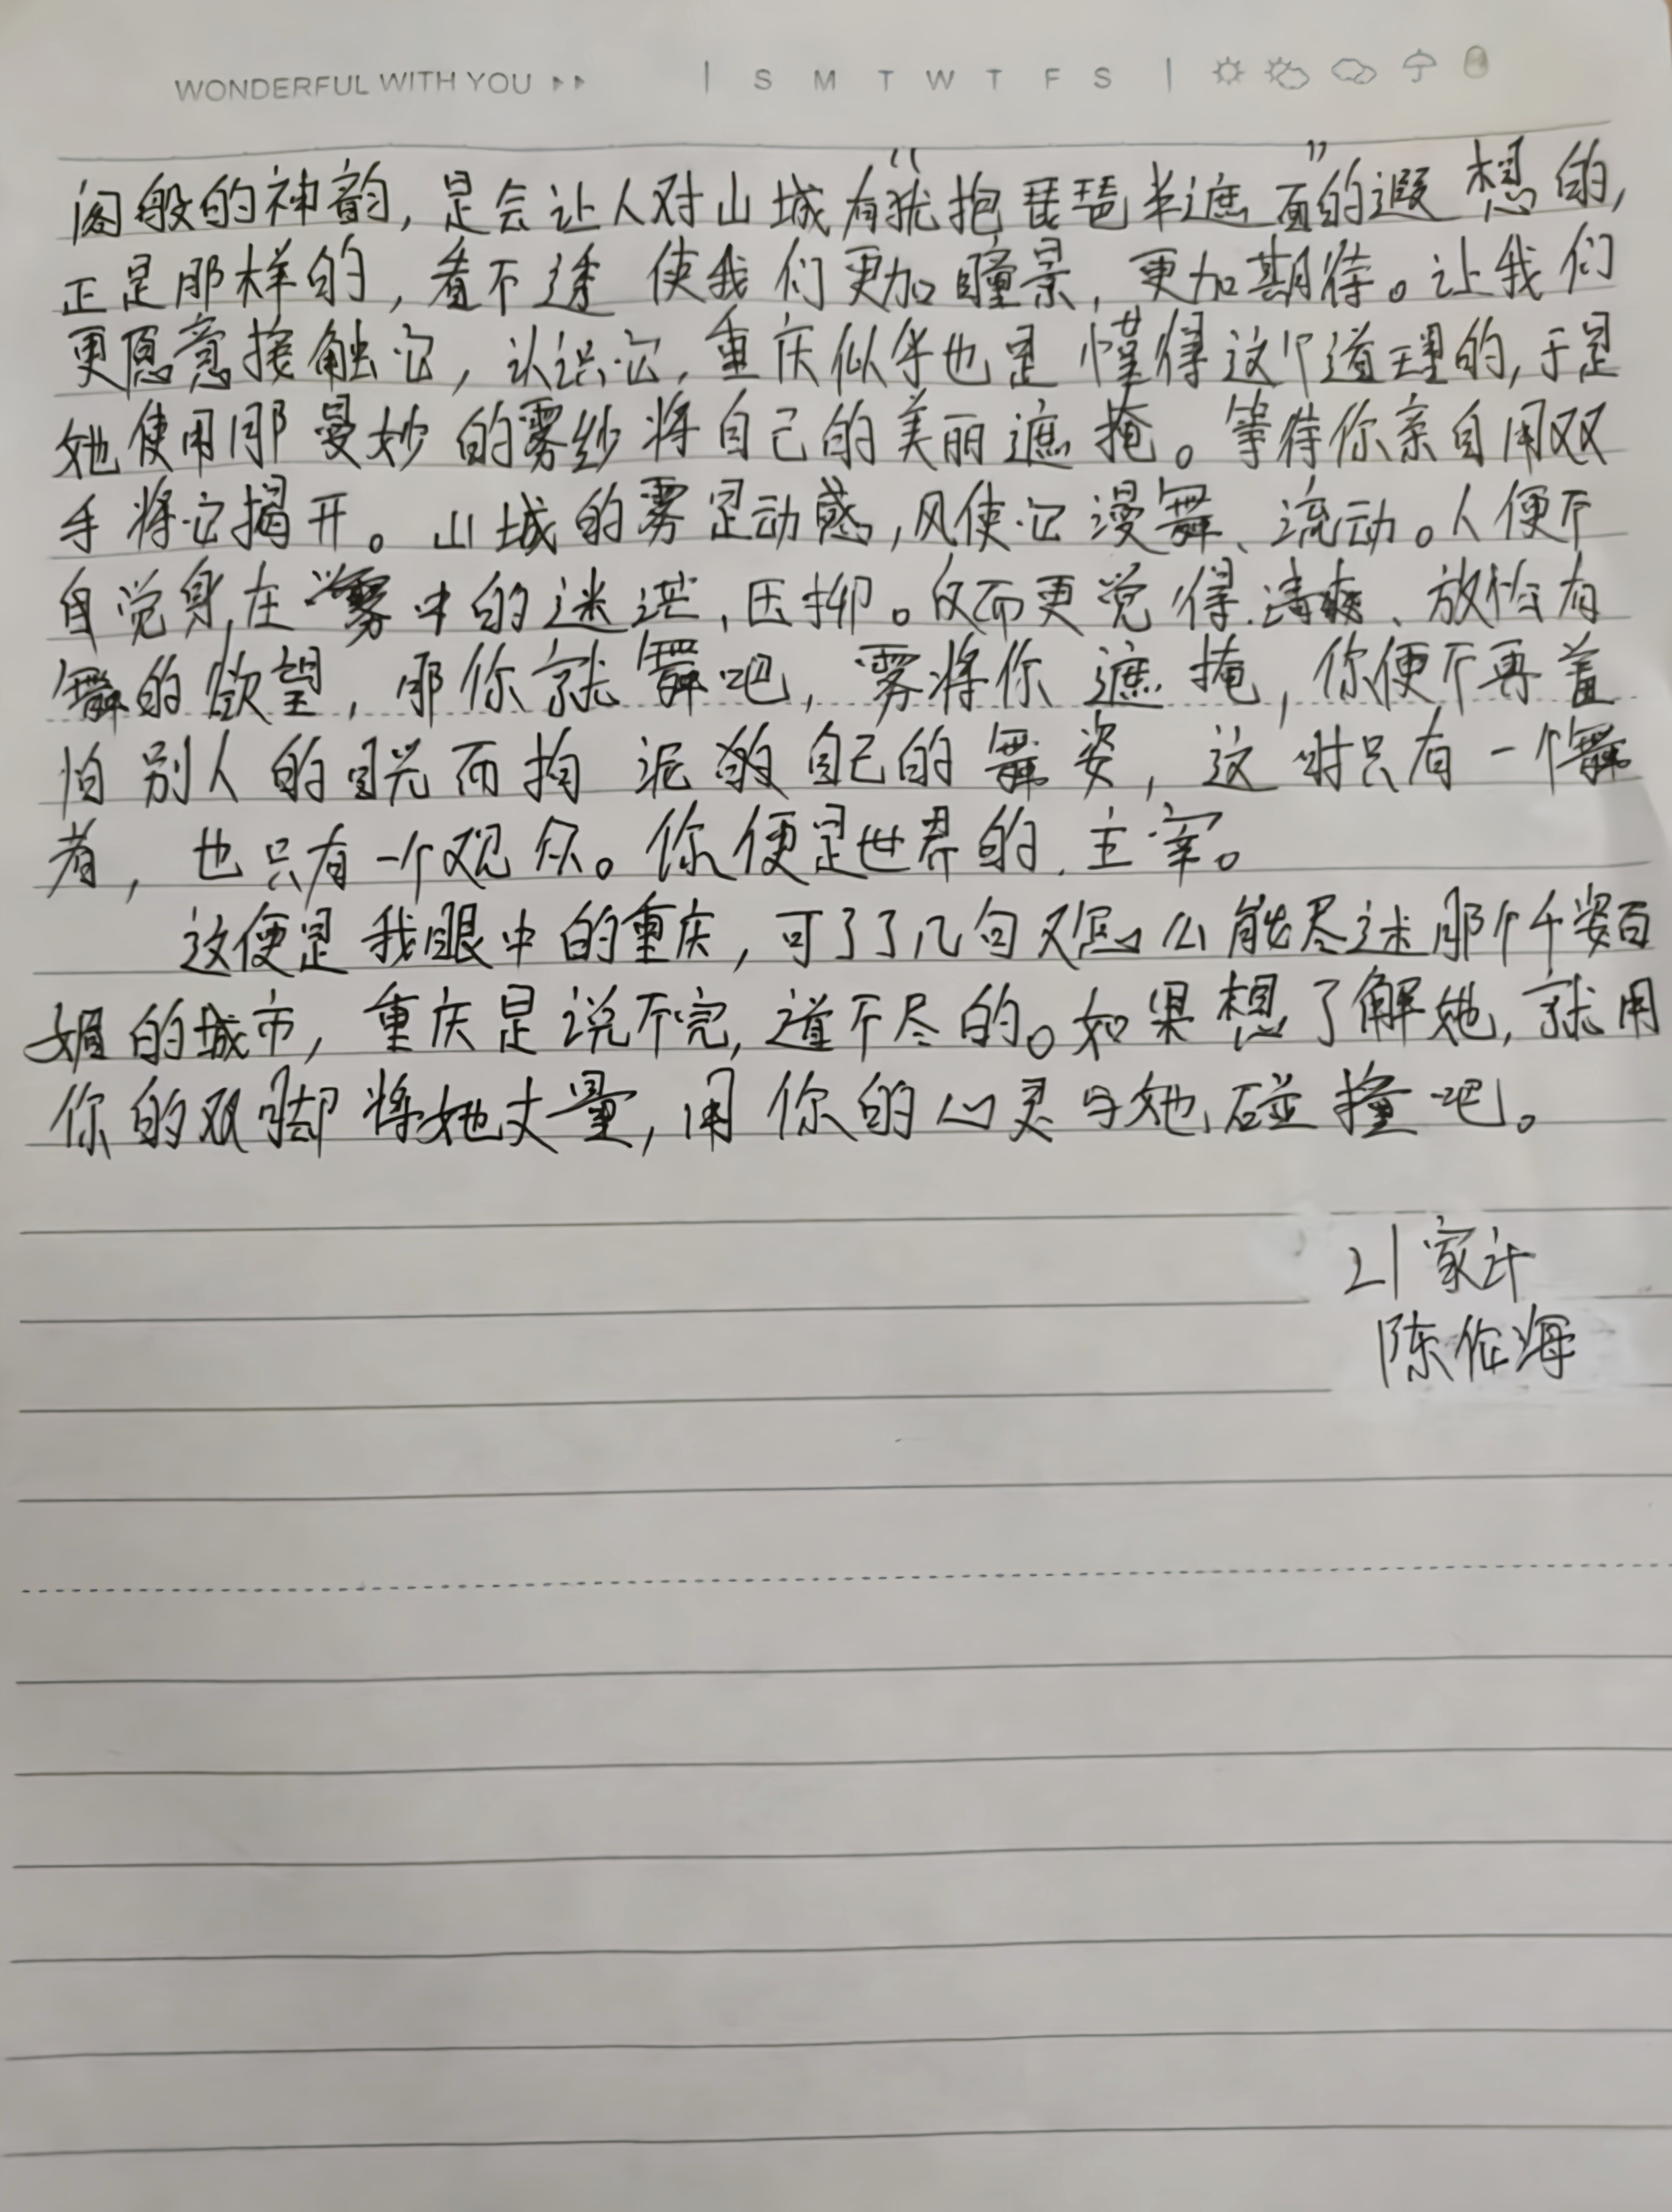 WONDERFUL WITH YOU | S M T W T F S |
阁般的神韵,是会让人对山城有“犹抱琵琶半遮面”的遐想的,
正是那样的,看不透使我们更加瞳景,更加期待。让我们
更愿意接触它,认识它,重庆似乎也是懂得这个道理的,于是
她使用那曼妙的雾纱将自己的美丽遮掩。等待你亲自用双
手将它揭开。山城的雾是动感,风使它漫舞、流动。人便不
自觉身在雾中的迷茫、压抑。反而更觉得清爽、放怡有
舞的欲望,那你就舞吧,雾将你遮掩,你便不再羞
怕别人的目光而拘泥自己的舞姿,这时只有一个舞
者,也只有一个观众。你便是世界的主宰。
这便是我眼中的重庆,可了了几句又怎么能尽述那个千姿百
媚的城市,重庆是说不完,道不尽的。如果想了解她,就用
你的双脚将她丈量,用你的心灵与她碰撞吧。
21家计
陈伦海